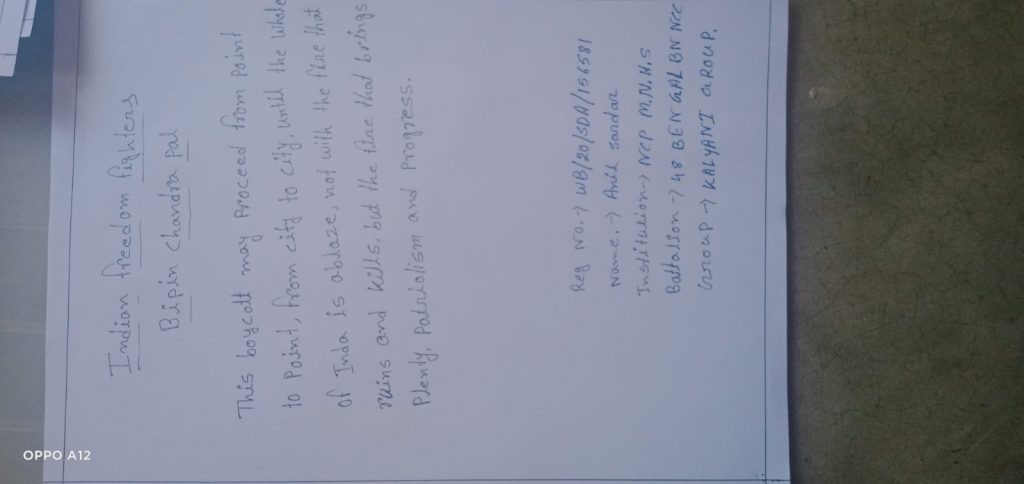 Indian freedom fighters
Bipin chandra pal
This boycott may proceed from point
to Point, from city to city, until the whole
of Inda is ablaze, not with the fire that
ruins and kills, but the fire that brings
Plenty, patriotism and progress.
Reg No. → WB/20/SDA/156581
Name. → Anil sardar
Institution → NCP M.N.H.S
Battalion → 48 BENGAL BN NCC
Group → KALYANI GROUP.
OPPO A12